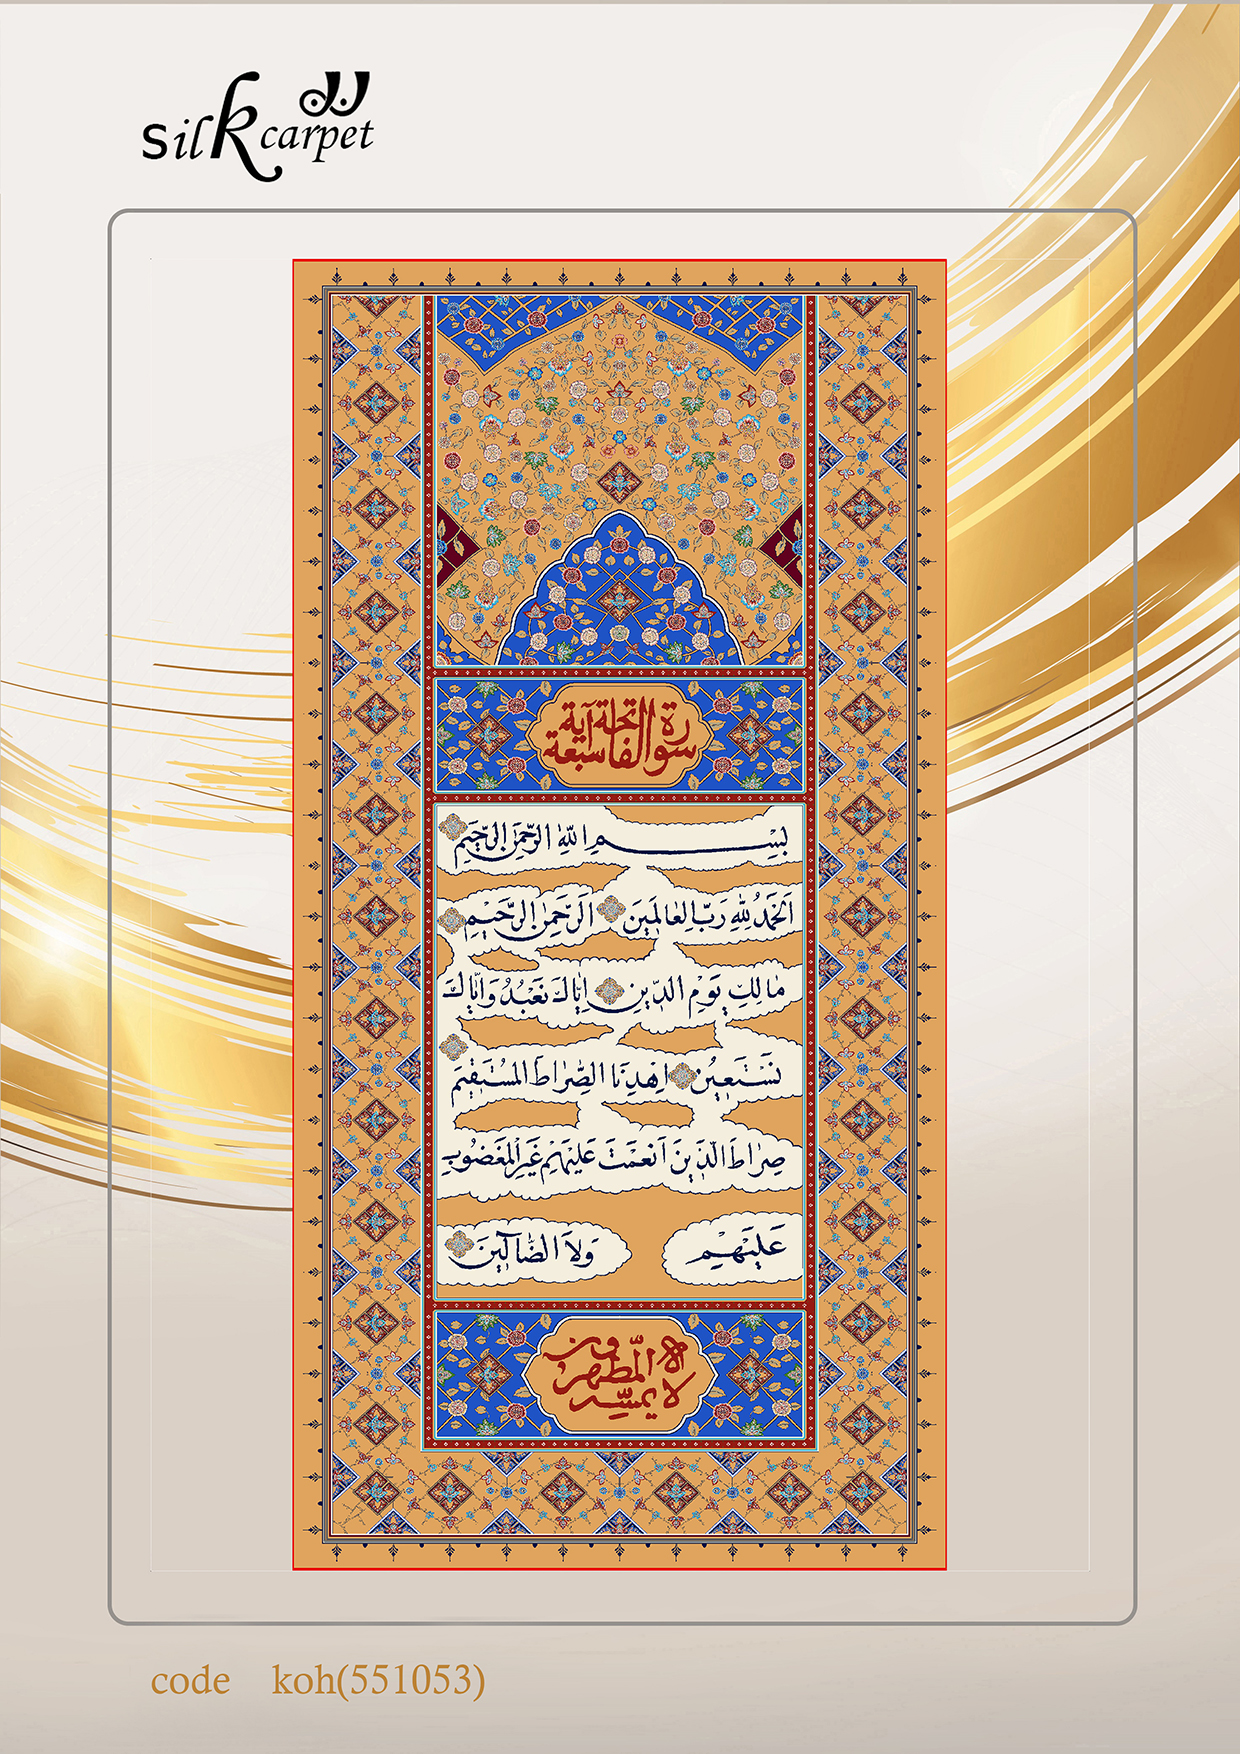 silk carpet
سورة الفاتحة سبعة آية
بِسْمِ اللّٰهِ الرَّحْمٰنِ الرَّحِيمِ
اَلْحَمْدُ لِلّٰهِ رَبِّ الْعَالَمِينَ اَلرَّحْمٰنِ الرَّحِيمِ
مَالِكِ يَوْمِ الدِّينِ اِيَّاكَ نَعْبُدُ وَاِيَّاكَ
نَسْتَعِينُ اِهْدِنَا الصِّرَاطَ الْمُسْتَقِيمَ
صِرَاطَ الَّذِينَ اَنْعَمْتَ عَلَيْهِمْ غَيْرِ الْمَغْضُوبِ
عَلَيْهِمْ وَلَا الضَّالِّينَ
لا يمسه
الا المطهرون
code koh(551053)